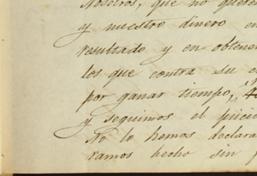 Nosotros, que no quere
y nuestro dinero en
resultado y en obtene
los que contra su
por ganar tiempo,
y seguimos el juicio
No lo hemos declara
ramos hecho sin